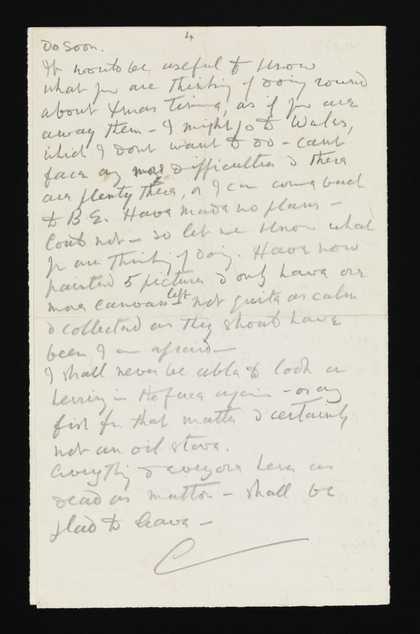 4
do soon.
It would be useful to know
what you are thinking of doing round
about Xmas time, as if you are
away then – I might go to Wales,
which I dont want to do – cant
face any more difficulties & there
are plenty there, or I can come back
to B.E. Have made no plans –
Could not – so let me know what
you are thinking of doing. Have now
painted 5 pictures & only have one
more canvas left not quite as calm
& collected as they should have
been I am afraid –
I shall never be able to look a
herring in the face again – or any
fish for that matter & certainly
not an oil stove.
Everything & everyone here as
dead as mutton – shall be
glad to leave –
C